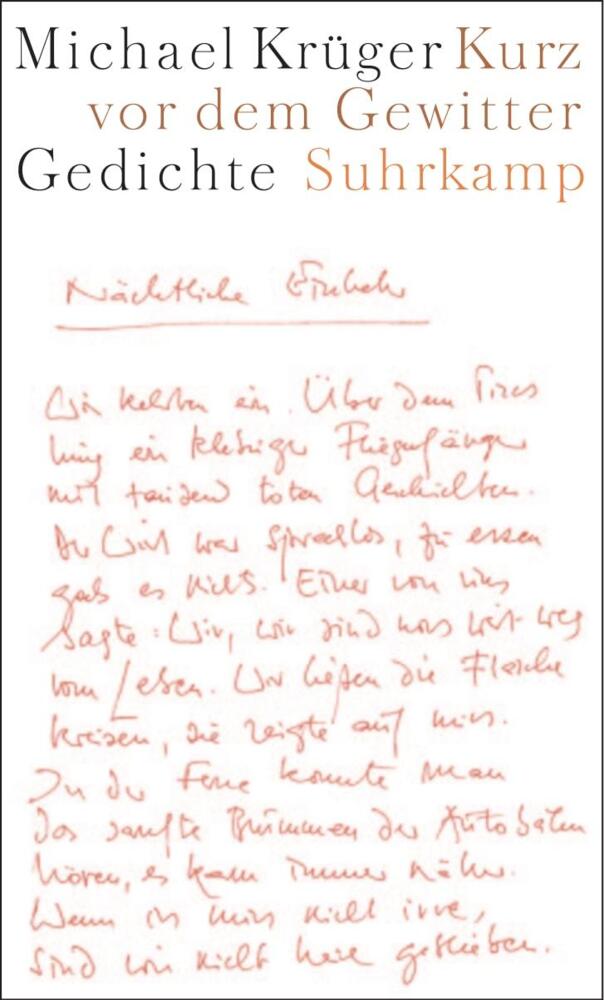 Michael Krüger Kurz
vor dem Gewitter
Gedichte Suhrkamp
Nächtliche Einkehr
Wir kehrten ein. Über dem Tires
hing ein klebriger Fliegenfänger
mit tausend toten Geschichten.
Der Wirt war sprachlos, zu essen
gab es nichts. Einer von uns
sagte: Wir, wir sind noch weit weg
vom Leben. Wir ließen die Flasche
kreisen, sie zeigte auf mich.
In der Ferne konnte man
das sanfte Brummen der Autobahn
hören, es kam immer näher.
Wenn ich mich nicht irre,
sind wir nicht heil geblieben.